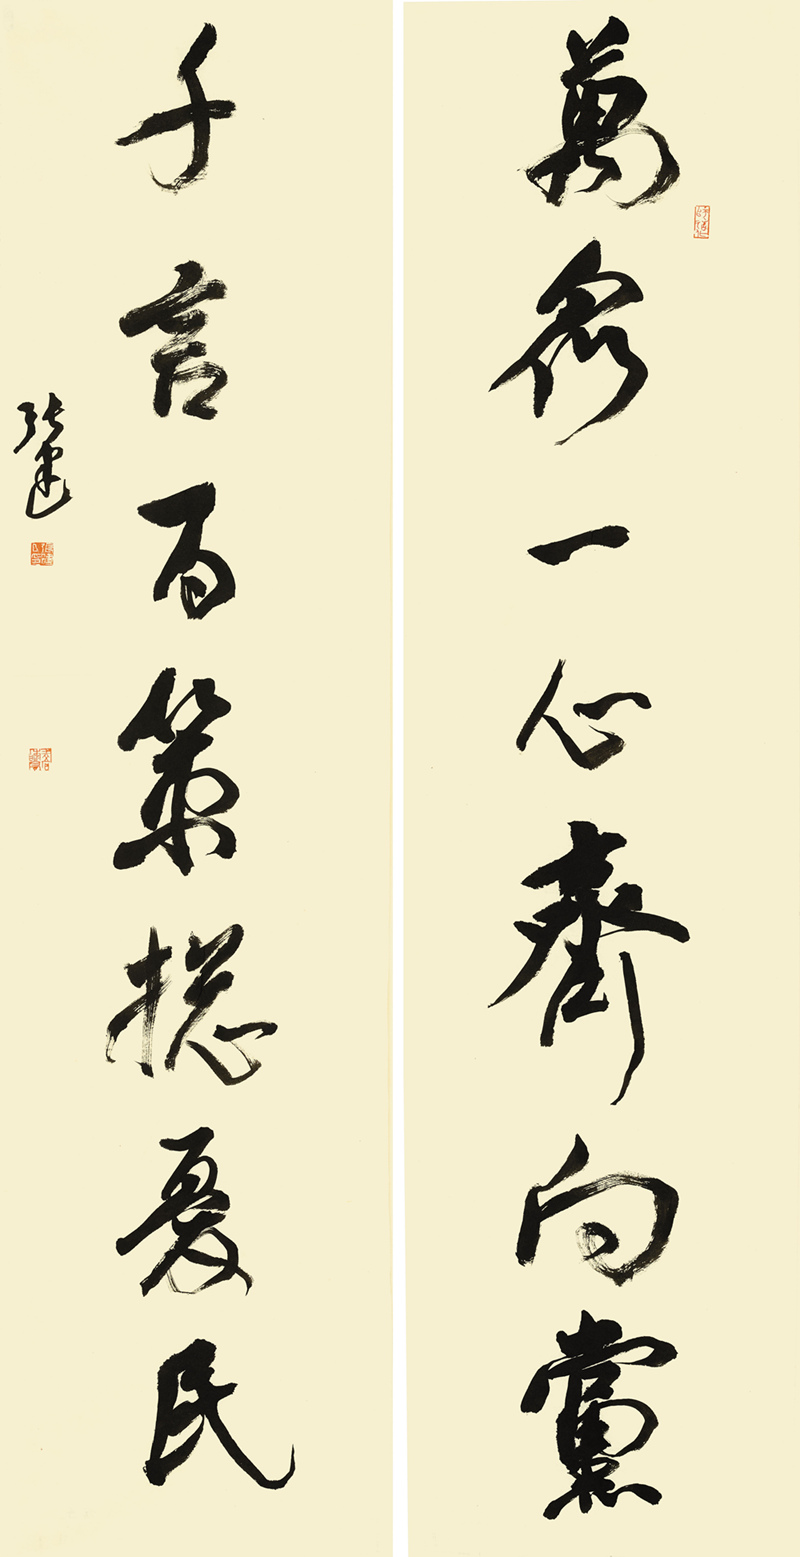 萬眾一心齊向黨
千言百策總憂民
張建